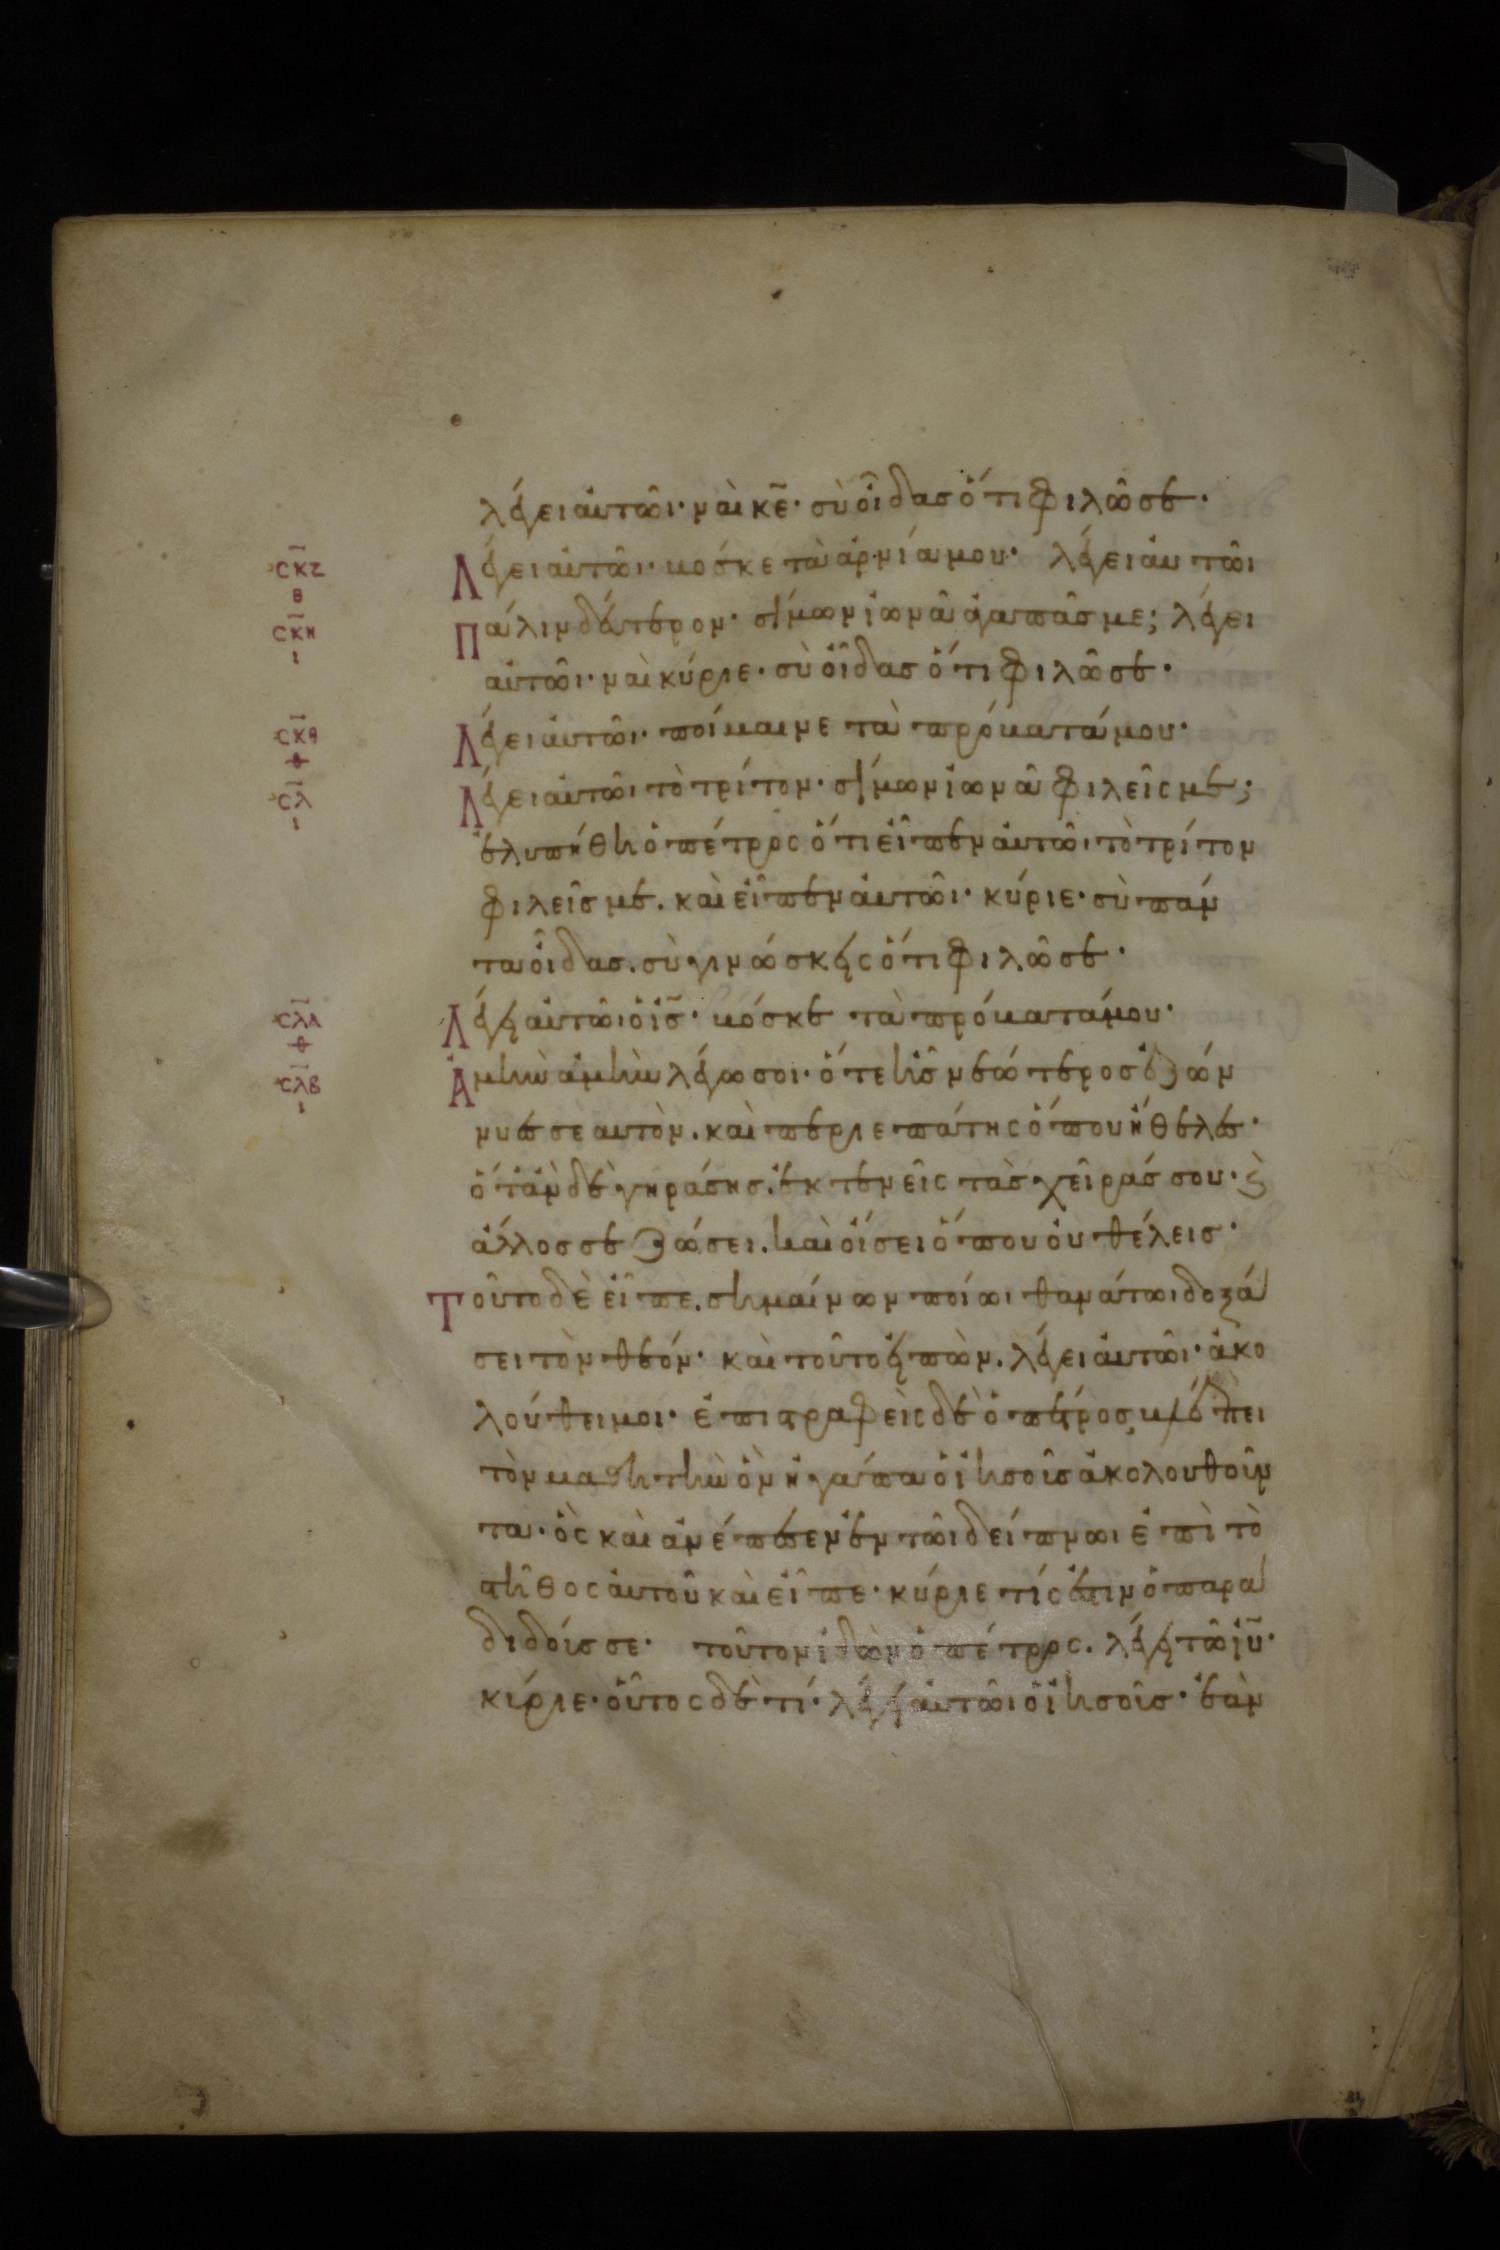 λέγει αὐτῶι· ναὶ κε̄· σὺ οἶδας ὅτι φιλῶ σε·
σκζ Λέγει αὐτῶι· βόσκε τὰ ἀρνία μου· λέγει αὐτῶι
θ
σκη Πάλιν δεύτερον· σίμων ἰωνᾶ ἀγαπᾶς με; λέγει
ι αὐτῶι· ναὶ κύριε· σὺ οἶδας ὅτι φιλῶ σε·
σκθ Λέγει αὐτῶι· ποίμαινε τὰ πρόβατά μου·
σλ Λέγει αὐτῶι τὸ τρίτον· σίμων ἰωνᾶ φιλεῖς με;
ι ἐλυπήθη ὁ πέτρος ὅτι εἶπεν αὐτῶι τὸ τρίτον
φιλεῖς με. καὶ εἶπεν αὐτῶι· κύριε· σὺ πάν
τα οἶδας. σὺ γινώσκεις ὅτι φιλῶ σε·
σλα Λέγει αὐτῶι ὁ ις̄· βόσκε τὰ πρόβατά μου·
σλβ Ἀμὴν ἀμὴν λέγω σοι· ὅτε ἦς νεώτερος ἐζών
ι νυες σεαυτὸν. καὶ περιεπάτης ὅπου ἤθελες·
ὅταν δὲ γηράσης. ἐκτενεῖς τὰς χεῖράς σου· ϗ
ἄλλος σε ζώσει. καὶ οἴσει ὅπου οὐ θέλεις·
Τοῦτο δὲ εἶπε. σημαίνων ποίωι θανάτωι δοξά
σει τὸν θεόν· καὶ τοῦτο εἰπὼν. λέγει αὐτῶι· ἀκο
λούθει μοι· ἐπιστραφεὶς δὲ ὁ πέτρος, βλέπει
τὸν μαθητὴν ὃν ἠγάπα ὁ ἰησοῦς ἀκολουθοῦν
τα· ὃς καὶ ἀνέπεσεν ἐν τῶι δείπνωι ἐπὶ τὸ
στῆθος αὐτοῦ καὶ εἶπε· κύριε τίς ἐστιν ὁ παρα
διδούς σε· τοῦτον ἰδὼν ὁ πέτρος. λέγει τῶ ιῡ·
κύριε· οὗτος δὲ τί· λέγει αὐτῶι ὁ ἰησοῦς· ἐὰν